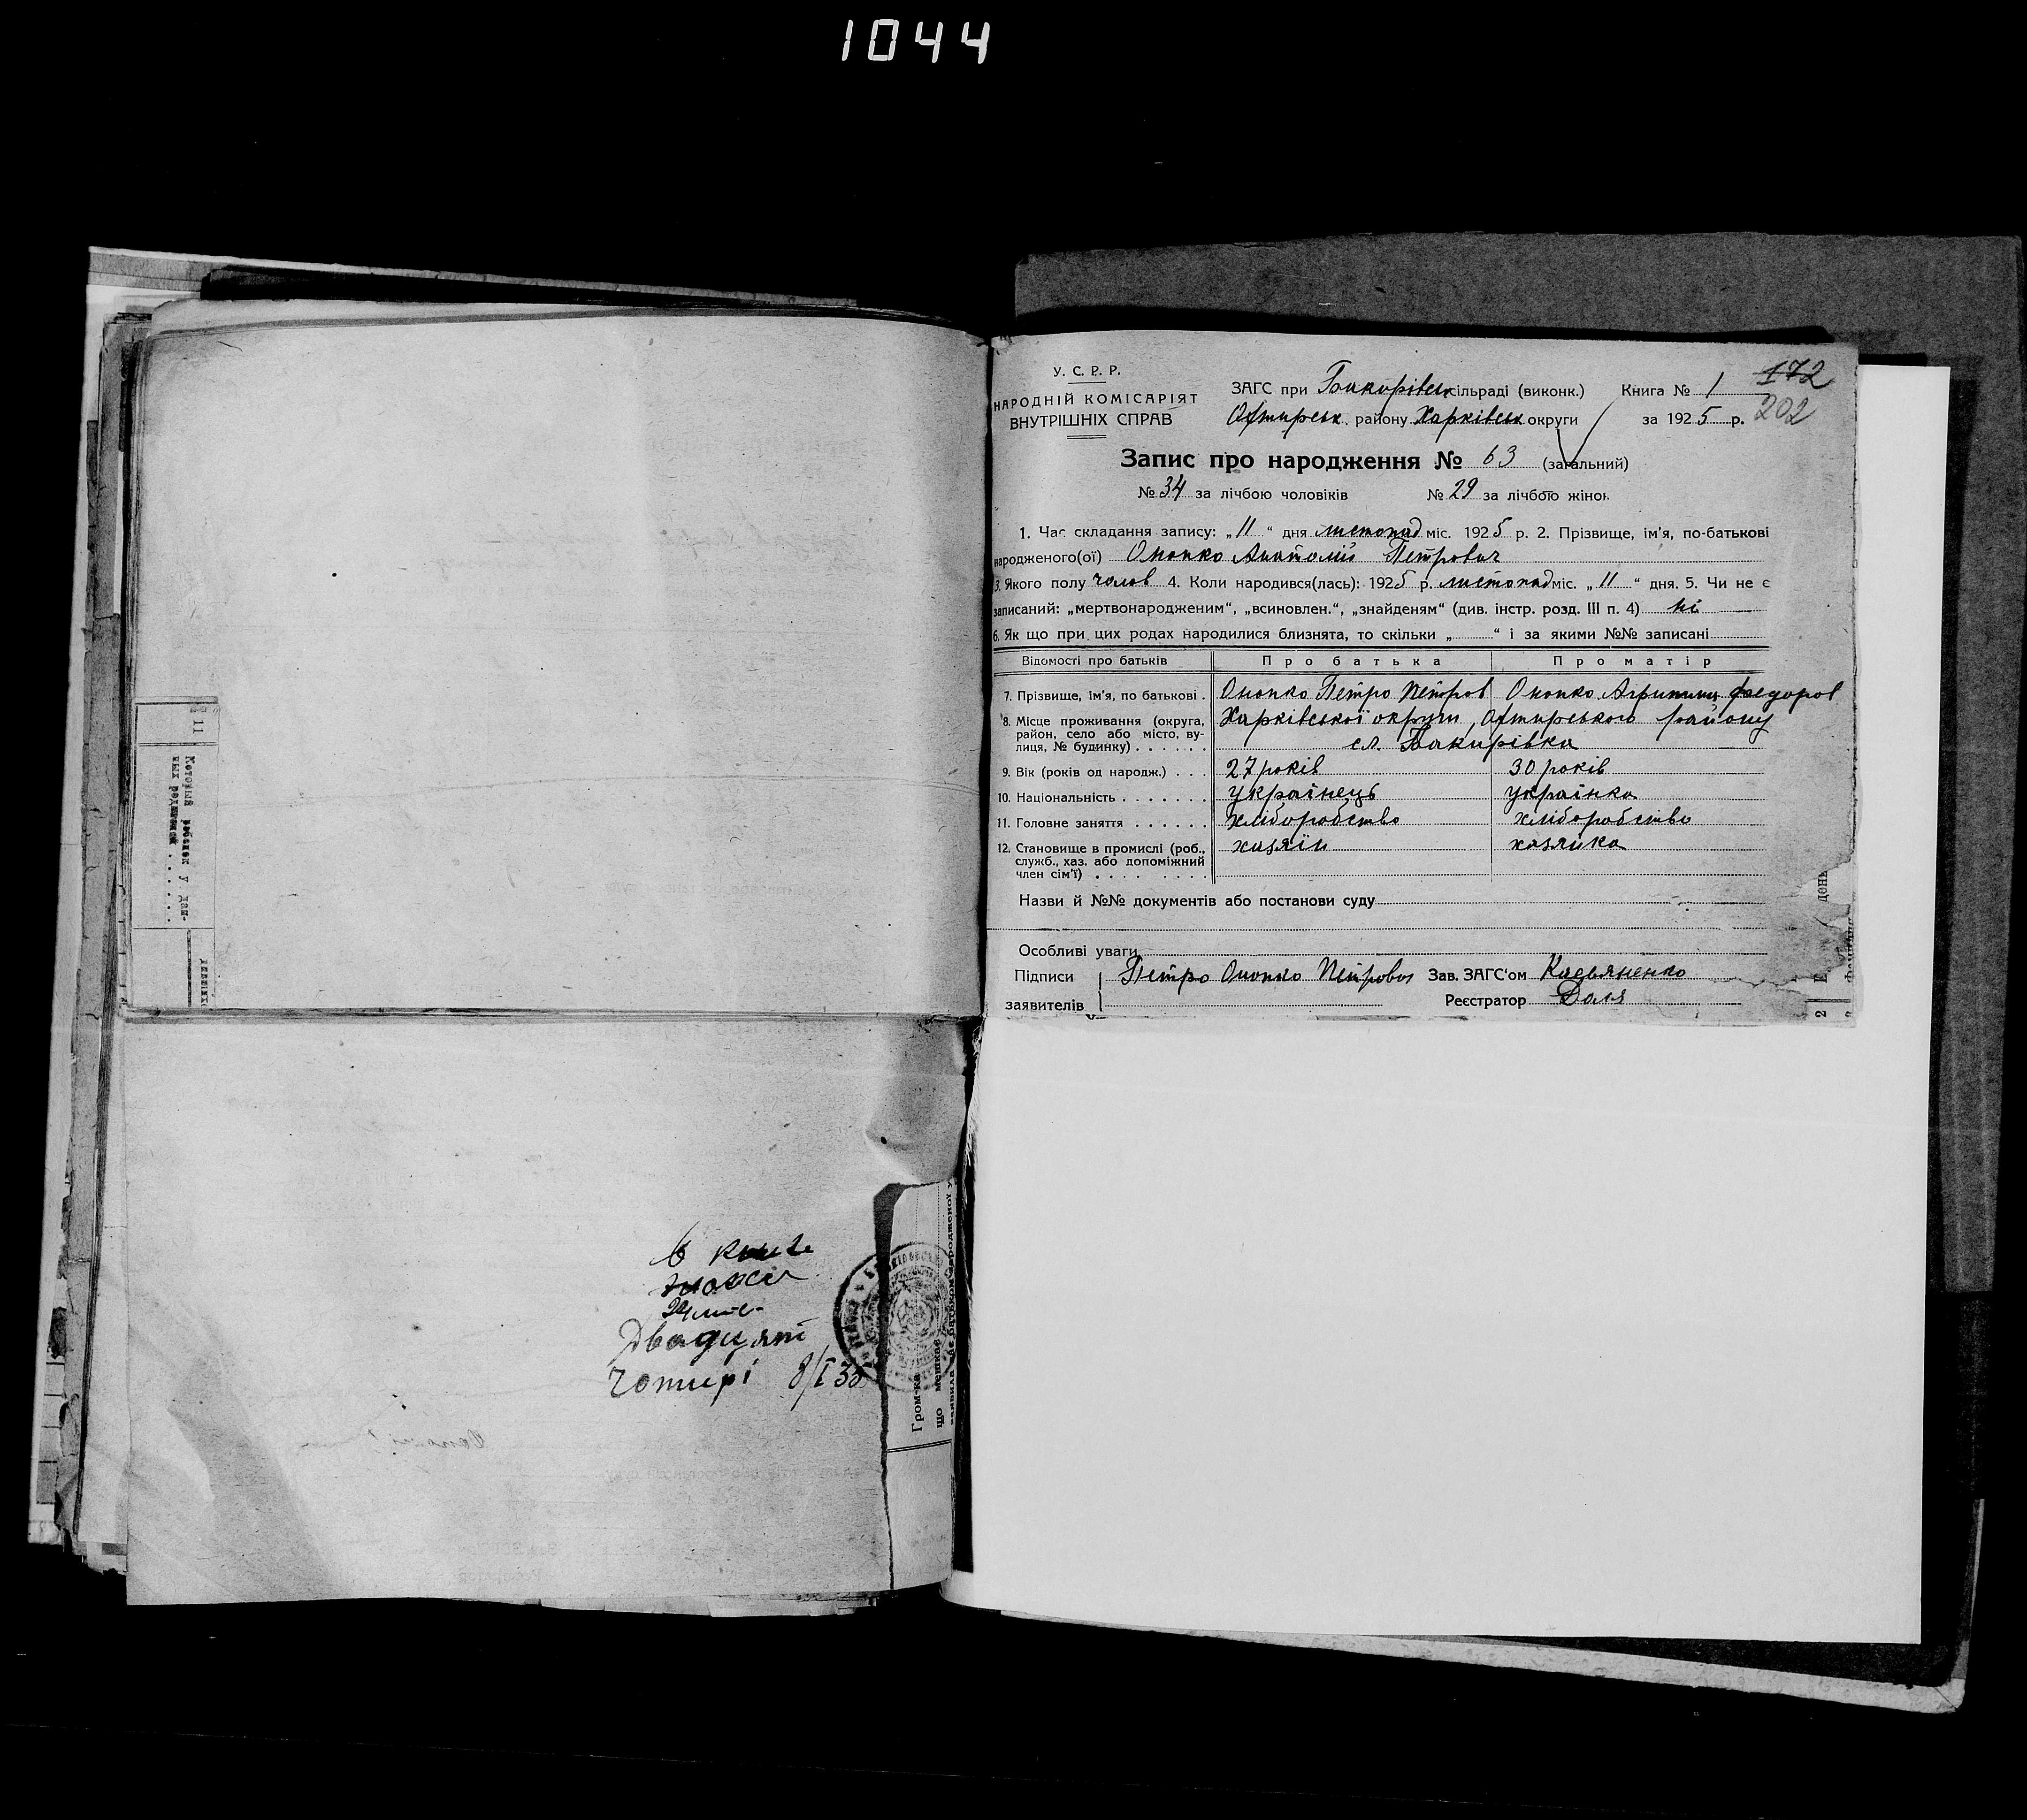 1044
11
Который ребенок у дан-
ных родителей . . . . . . .
В книзі
двадцят
чотирі 8/I 35
Гром-ка
що мешкає
У. С. Р. Р.
НАРОДНІЙ КОМІСАРІЯТ
ВНУТРІШНІХ СПРАВ
ЗАГС при Бакирівськ сільраді (виконк.) Книга № 1 172
Охтирськ. району Харківськ округи за 1925 р. 202
Запис про народження № 63 (загальний)
№ 34 за лічбою чоловіків № 29 за лічбою жінок
1. Час складання запису: „11“ дня листопад міс. 1925 р. 2. Прізвище, ім’я, по-батькові
народженого(ої) Онопко Анатолій Петрович
3. Якого полу чолов 4. Коли народився(лась): 1925 р. листопад міс. „11“ дня. 5. Чи не є
записаний: „мертвонародженим“, „всиновлен.“, „знайденям“ (див. інстр. розд. III п. 4) ні
6. Як що при цих родах народилися близнята, то скільки „ “ і за якими №№ записані
Відомості про батьків Про батька Про матір
7. Прізвище, ім’я, по батькові . Онопко Петро Петров Онопко Агрипина Федоров
8. Місце проживання (округа, район, село або місто, ву- лиця, № будинку) . . . . . . Харківської округи, Охтирського району
сл. Бакирівка
9. Вік (років од народж.) . . . 27 років 30 років
10. Національність . . . . . . . українець українка
11. Головне заняття . . . . . . хліборобство хліборобство
12. Становище в промислі (роб., служб., хаз. або допоміжний член сім’ї) . . . . . . . . хазяїн хазяйка
Назви й №№ документів або постанови суду
Особливі уваги
Підписи Петро Онопко Петрович Зав. ЗАГС‘ом Касьяненко
заявителів Реєстратор Доля
день